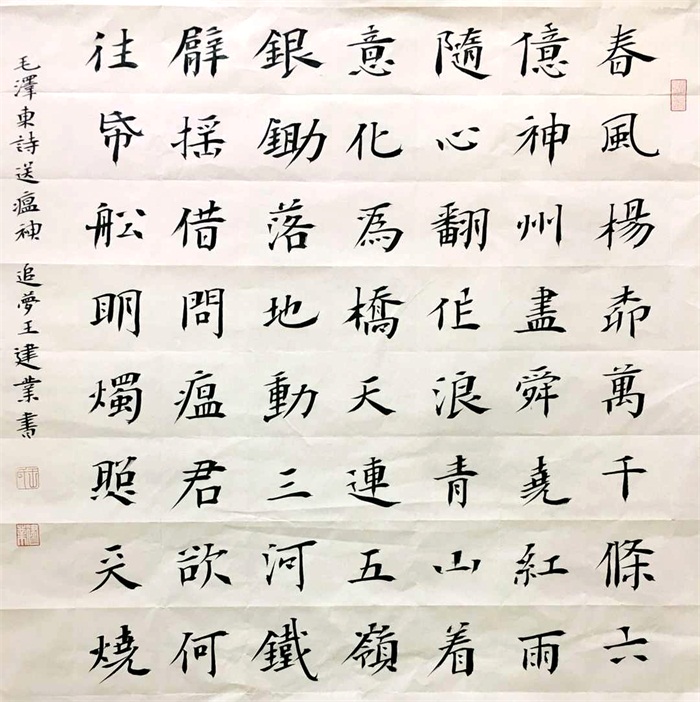 春風楊柳萬千條六
億神州盡舜堯紅雨
隨心翻作浪青山着
意化為橋天連五嶺
銀鋤落地動三河鐵
臂搖借問瘟君欲何
往帋舩明燭照天燒
毛澤東詩送瘟神 追夢王建業書